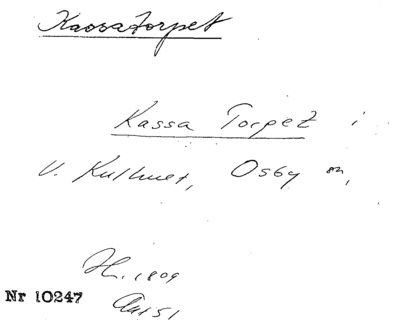 Kassatorpet
Kassa Torpet i
V. Kulluet, Osby sn,
H. 1809
Nr 10247